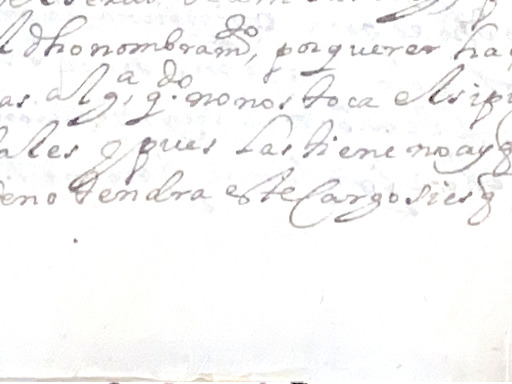 l dho nombram.do, por querer ha
as alg.a q.do no nos toca el si p
ales y pues las tiene no ay q
eno tendra este Cargo si es q